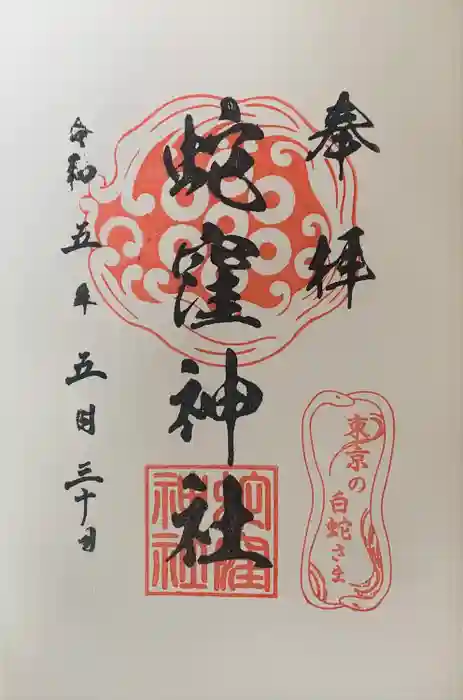 奉拝
蛇窪神社
蛇窪神社
東京の
白蛇さま
令和五年五月三十日